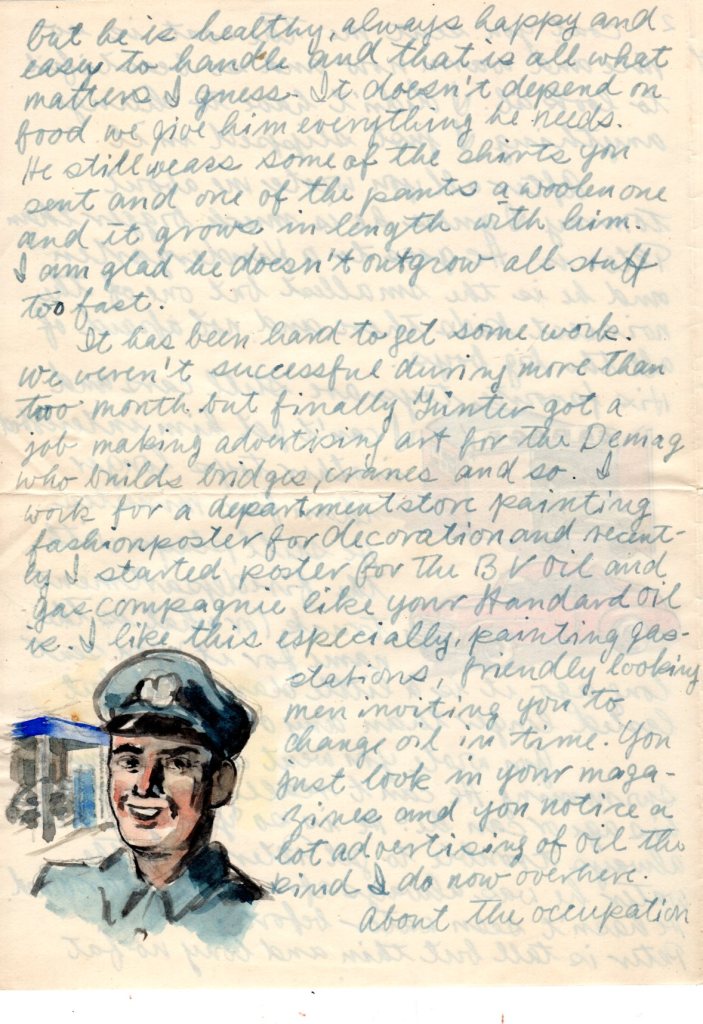 but he is healthy, always happy and
easy to handle and that is all what
matters I guess. It doesn't depend on
food we give him everything he needs.
He still wears some of the shirts you
sent and one of the pants a woolen one
and it grows in length with him.
I am glad he doesn't outgrow all stuff
too fast.
It has been hard to get some work.
We weren't successful during more than
two month but finally Günter got a
job making advertising art for the Demag
who builds bridges, cranes and so. I
work for a departmentstore painting
fashionposter for decoration and recent-
ly I started poster for the B V Oil and
gascompagnie like your Standard Oil
is. I like this especially, painting gas-
stations, friendly looking
men inviting you to
change oil in time. You
just look in your maga-
zines and you notice a
lot advertising of oil the
kind I do now overhere.
About the occupation